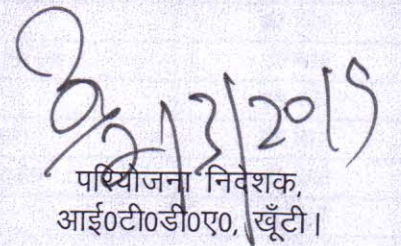 21/3/2015
परियोजना निदेशक,
आई0टी0डी0ए0, खूँटी।